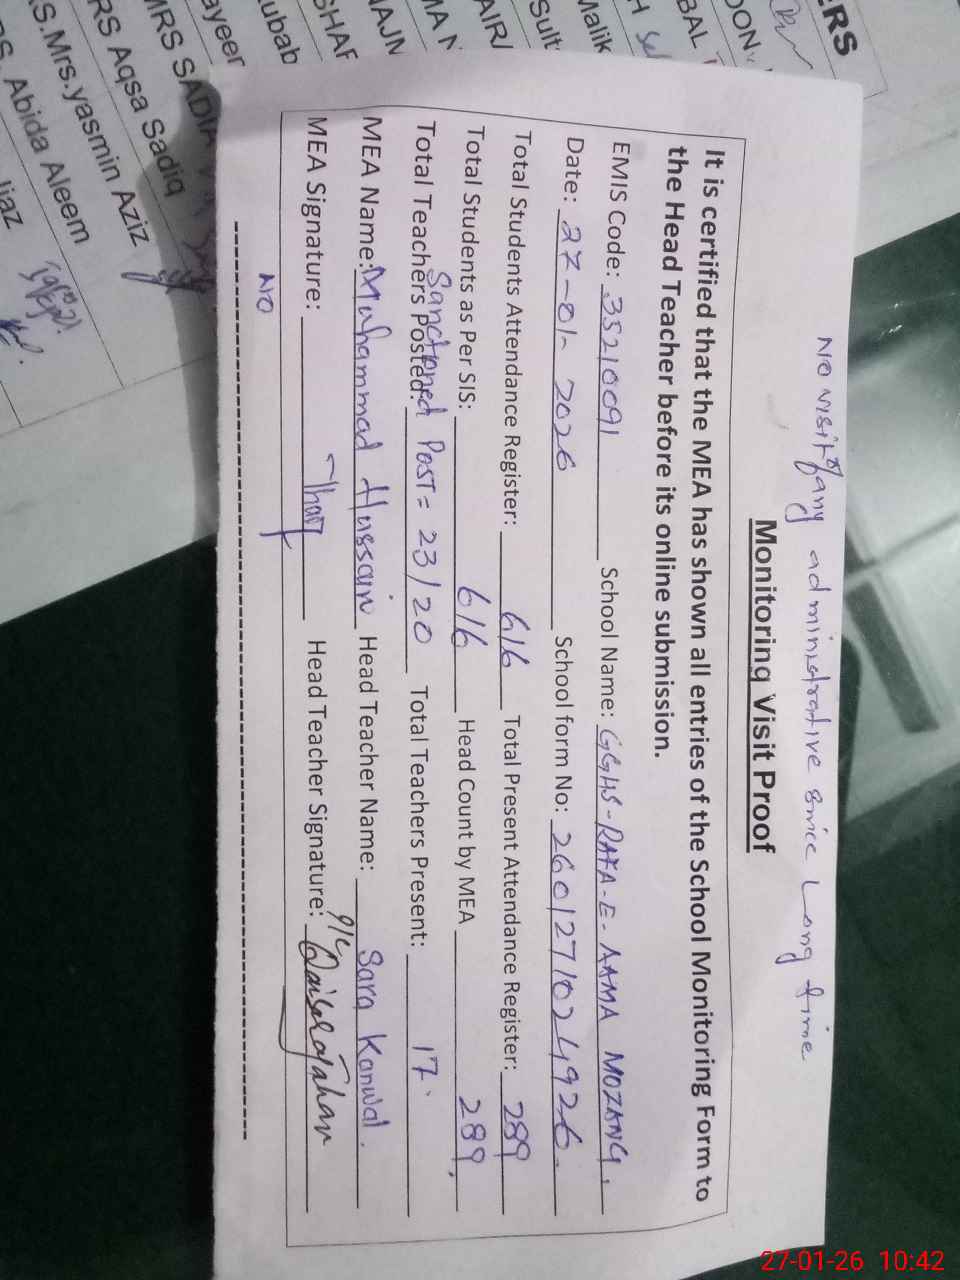 No visit of any administrative since Long time
Monitoring Visit Proof
It is certified that the MEA has shown all entries of the School Monitoring Form to
the Head Teacher before its online submission.
EMIS Code: 35210091 School Name: GGHS-RAFA-E-AAMA MOZANG.
Date: 27-01-2026 School form No: 2601271024926.
Total Students Attendance Register: 616 Total Present Attendance Register: 289
Total Students as Per SIS: 616 Head Count by MEA 289.
Sanctioned Post = 23/20
Total Teachers Posted: Total Teachers Present: 17.
MEA Name: Muhammad Hussain Head Teacher Name: Sara Kanwal.
MEA Signature: Head Teacher Signature: Qaiser Jahan
NO
ERS
DON
BAL
H
Malik
Sult
AIR
MA N
NAJN
SHAF
ubab
ayeer
MRS SADIA
RS Aqsa Sadiq
S.Mrs.yasmin Aziz
Abida Aleem
liaz
27-01-26 10:42